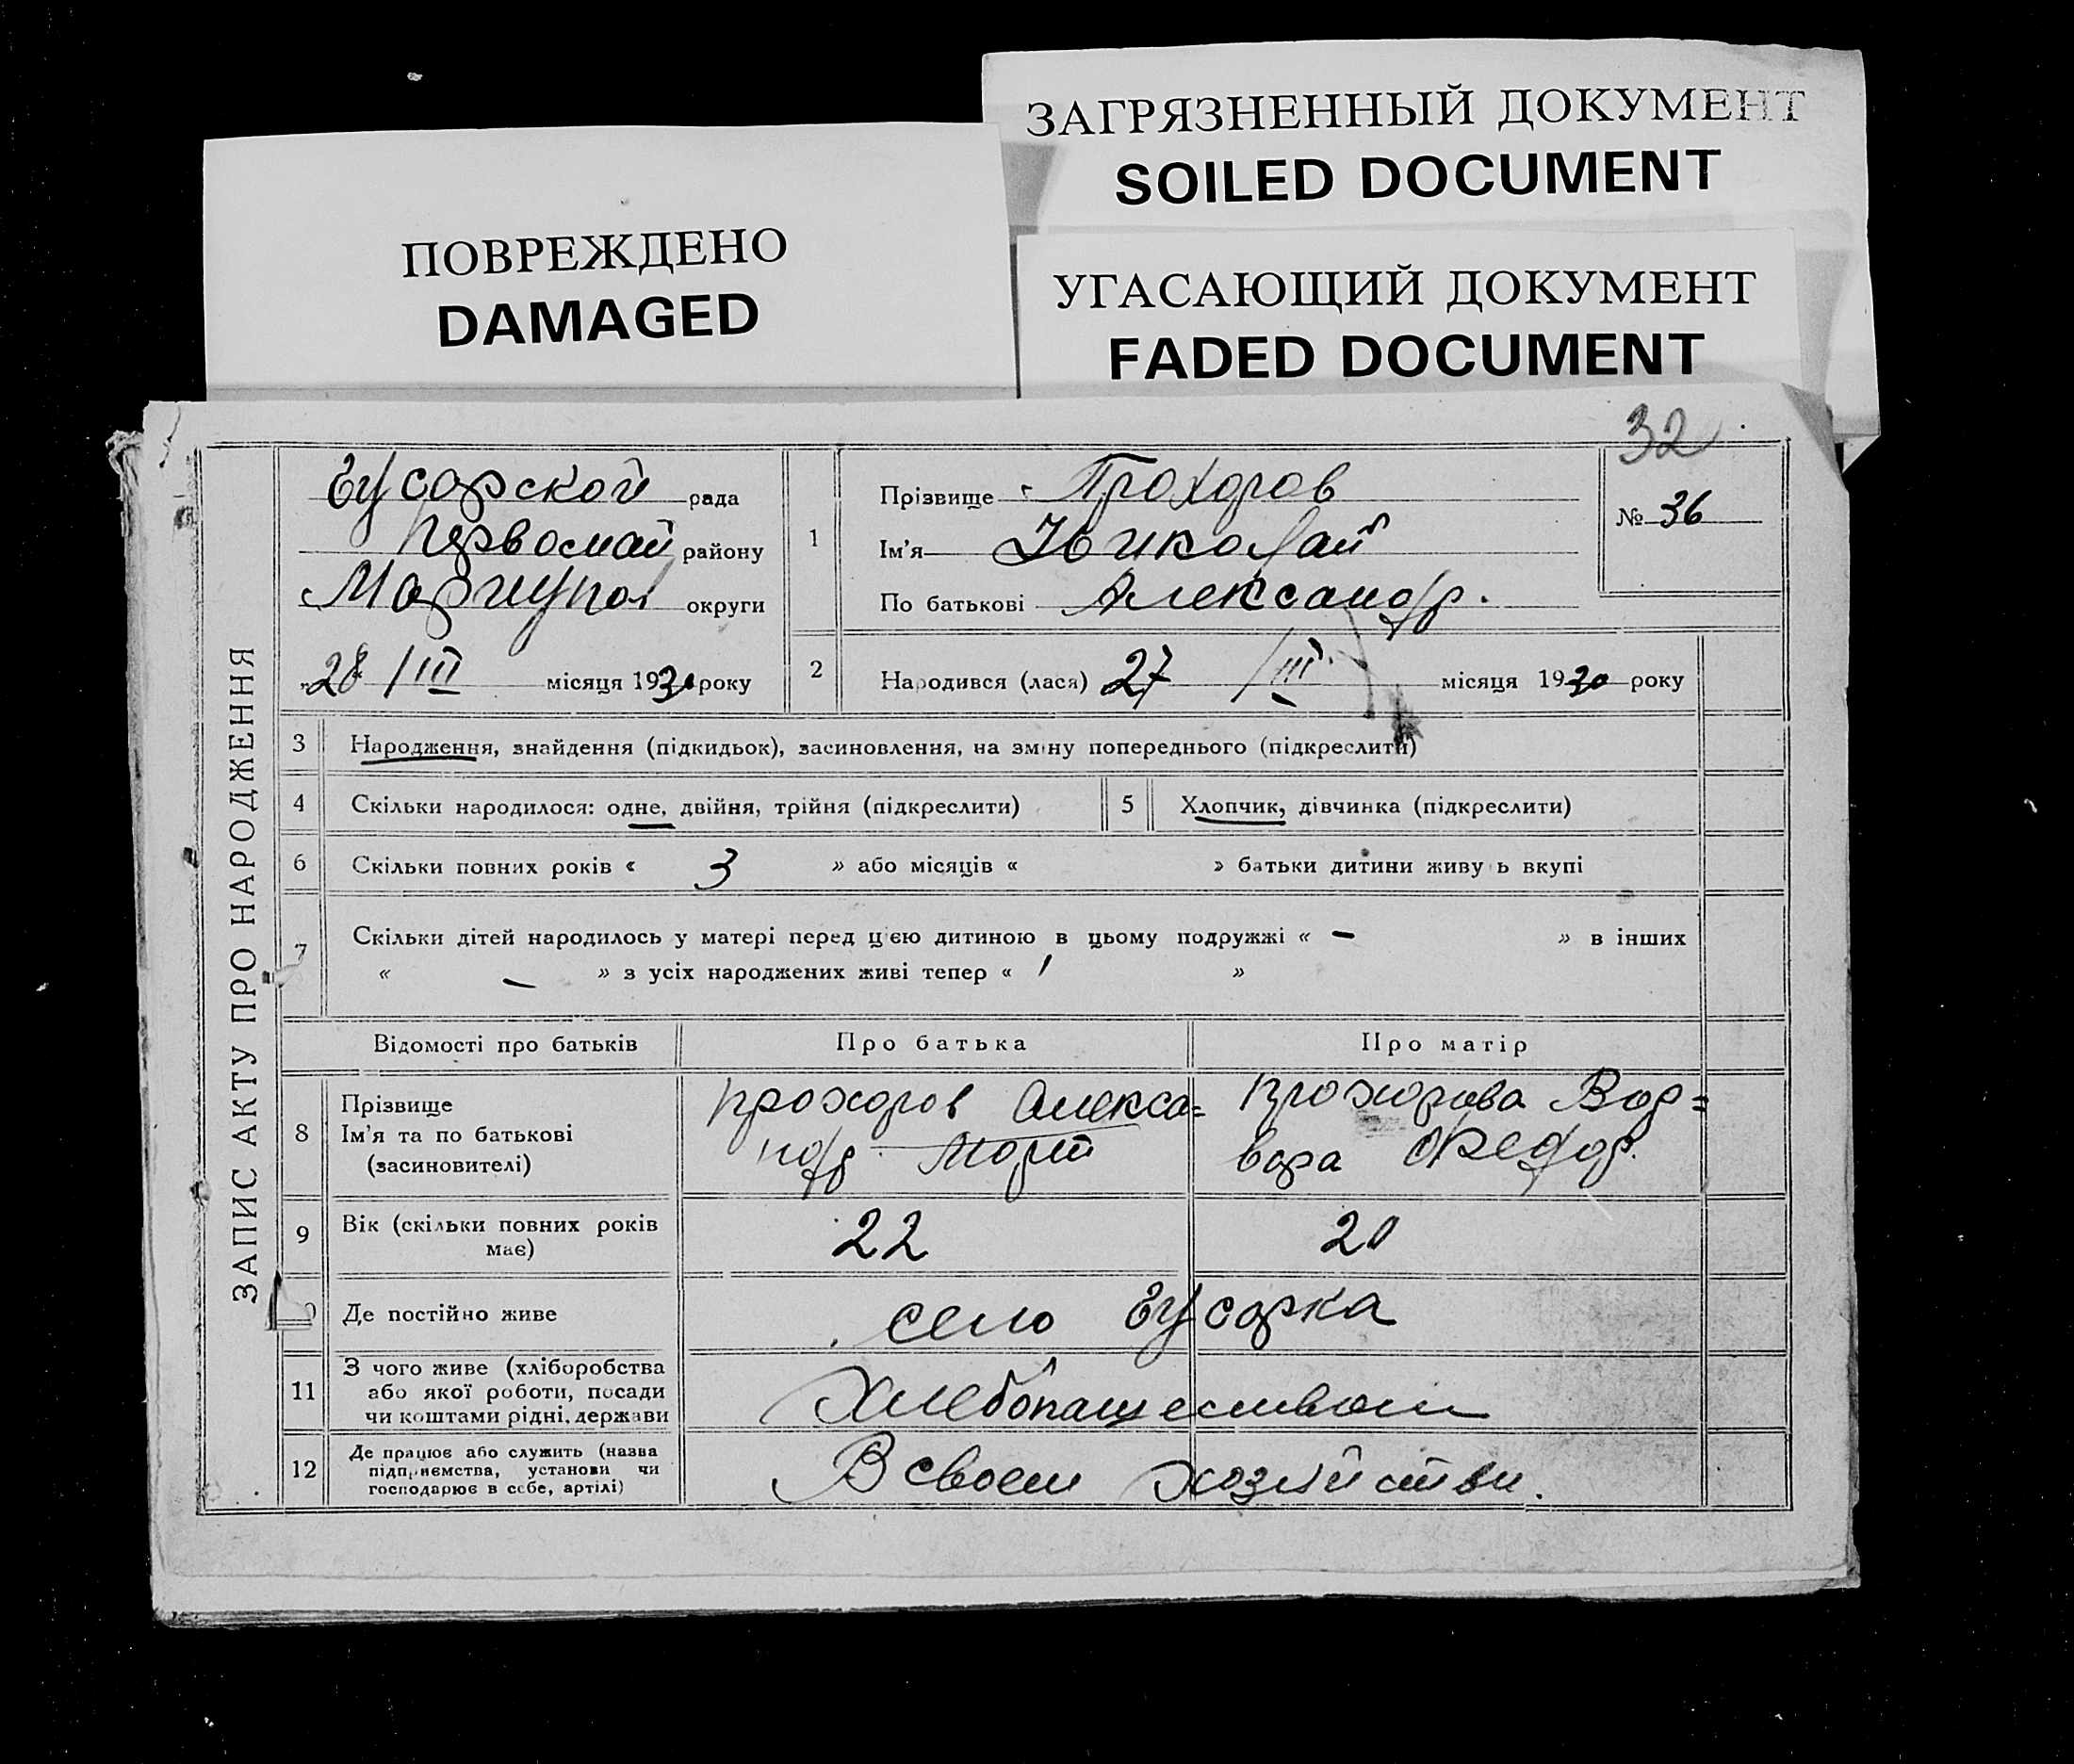 ЗАГРЯЗНЕННЫЙ ДОКУМЕНТ
SOILED DOCUMENT
ПОВРЕЖДЕНО
DAMAGED
УГАСАЮЩИЙ ДОКУМЕНТ
FADED DOCUMENT
32
ЗАПИС АКТУ ПРО НАРОДЖЕННЯ
Гусарской рада
Первомай району
Мариупол округи
„28 / III місяця 1930 року
1 Прізвище Прохоров
Ім'я Николай
По батькові Александр.
№ 36
2 Народився (лася) 27 / III місяця 1930 року
3 Народження, знайдення (підкидьок), засиновлення, на зміну попереднього (підкреслити)
4 Скільки народилося: одне, двійня, трійня (підкреслити) 5 Хлопчик, дівчинка (підкреслити)
6 Скільки повних років « 3 » або місяців « » батьки дитини живу ь вкупі
7 Скільки дітей народилось у матері перед цією дитиною в цьому подружжі « – » в інших
« – » з усіх народжених живі тепер « 1 »
Відомості про батьків Про батька Про матір
8 Прізвище
Ім'я та по батькові
(засиновителі)
Прохоров Алекса=
ндр
Прохорова Вар=
вара Федор.
9 Вік (скільки повних років
має)
22 20
Де постійно живе село Гусарка
11 З чого живе (хліборобства
або якої роботи, посади
чи коштами рідні, держави
Хлебопашеством
12 Де працює або служить (назва
підприємства, установи чи
господарює в себе, артілі)
В своем хозяйстви.